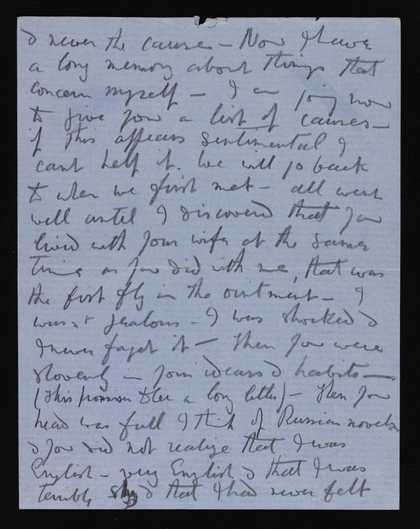 & never the causes – Now I have
a long memory about things that
concern myself – I am going now
to give you a list of causes –
if this appears sentimental I
cant help it. We will go back
to when we first met – all went
well until I discovered that you
lived with your wife at the same
time as you did with me, that was
the first fly in the ointment – I
wasnt jealous – I was shocked &
I never forgot it – Then you were
slovenly in your ideas & habits –
(This promises to be a long letter) – Then your
head was full I think of Russian novels
& you did not realize that I was
English – very English & that I was
terribly shy & that I had never felt